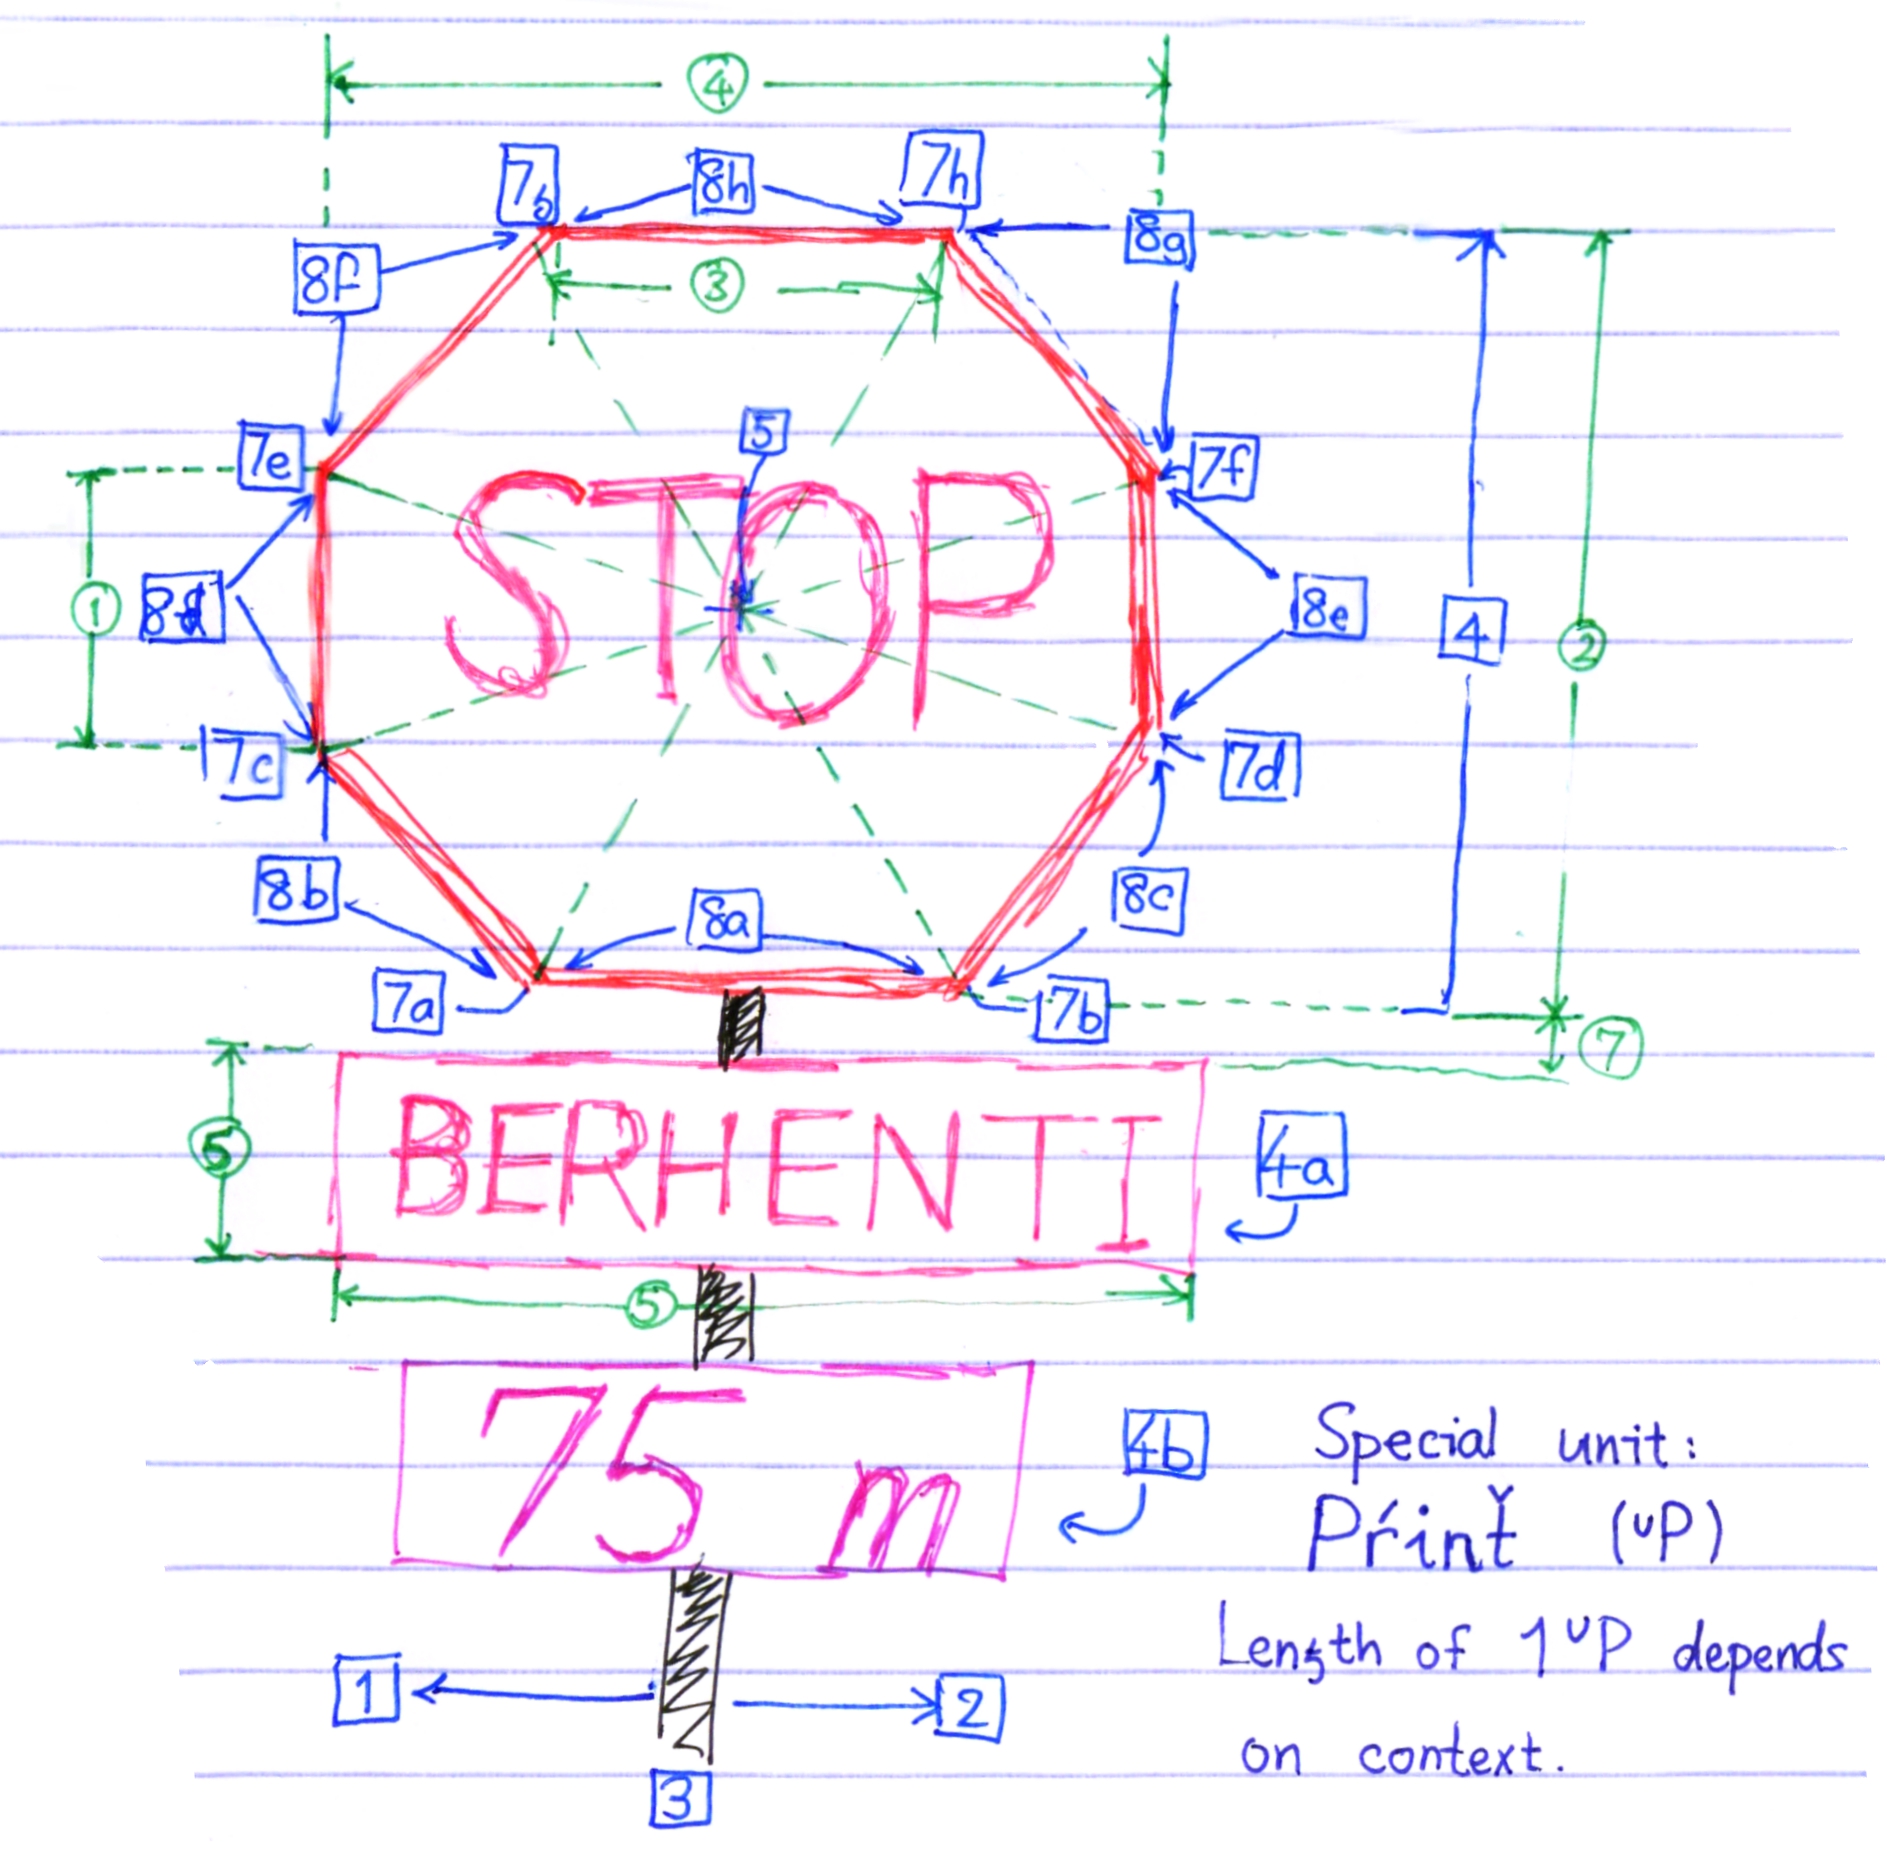 ④
7b 8h 7h
8f 8g
③
5
7e 7f
STOP
① 8d 8e 4 ②
7c 7d
8b 8a 8c
7a 7b
⑦
BERHENTI
⑤ 4a
⑤
75 m
4b
Special unit:
Pŕinť (ᴜP)
Length of 1ᵁP depends
on context.
1 2
3